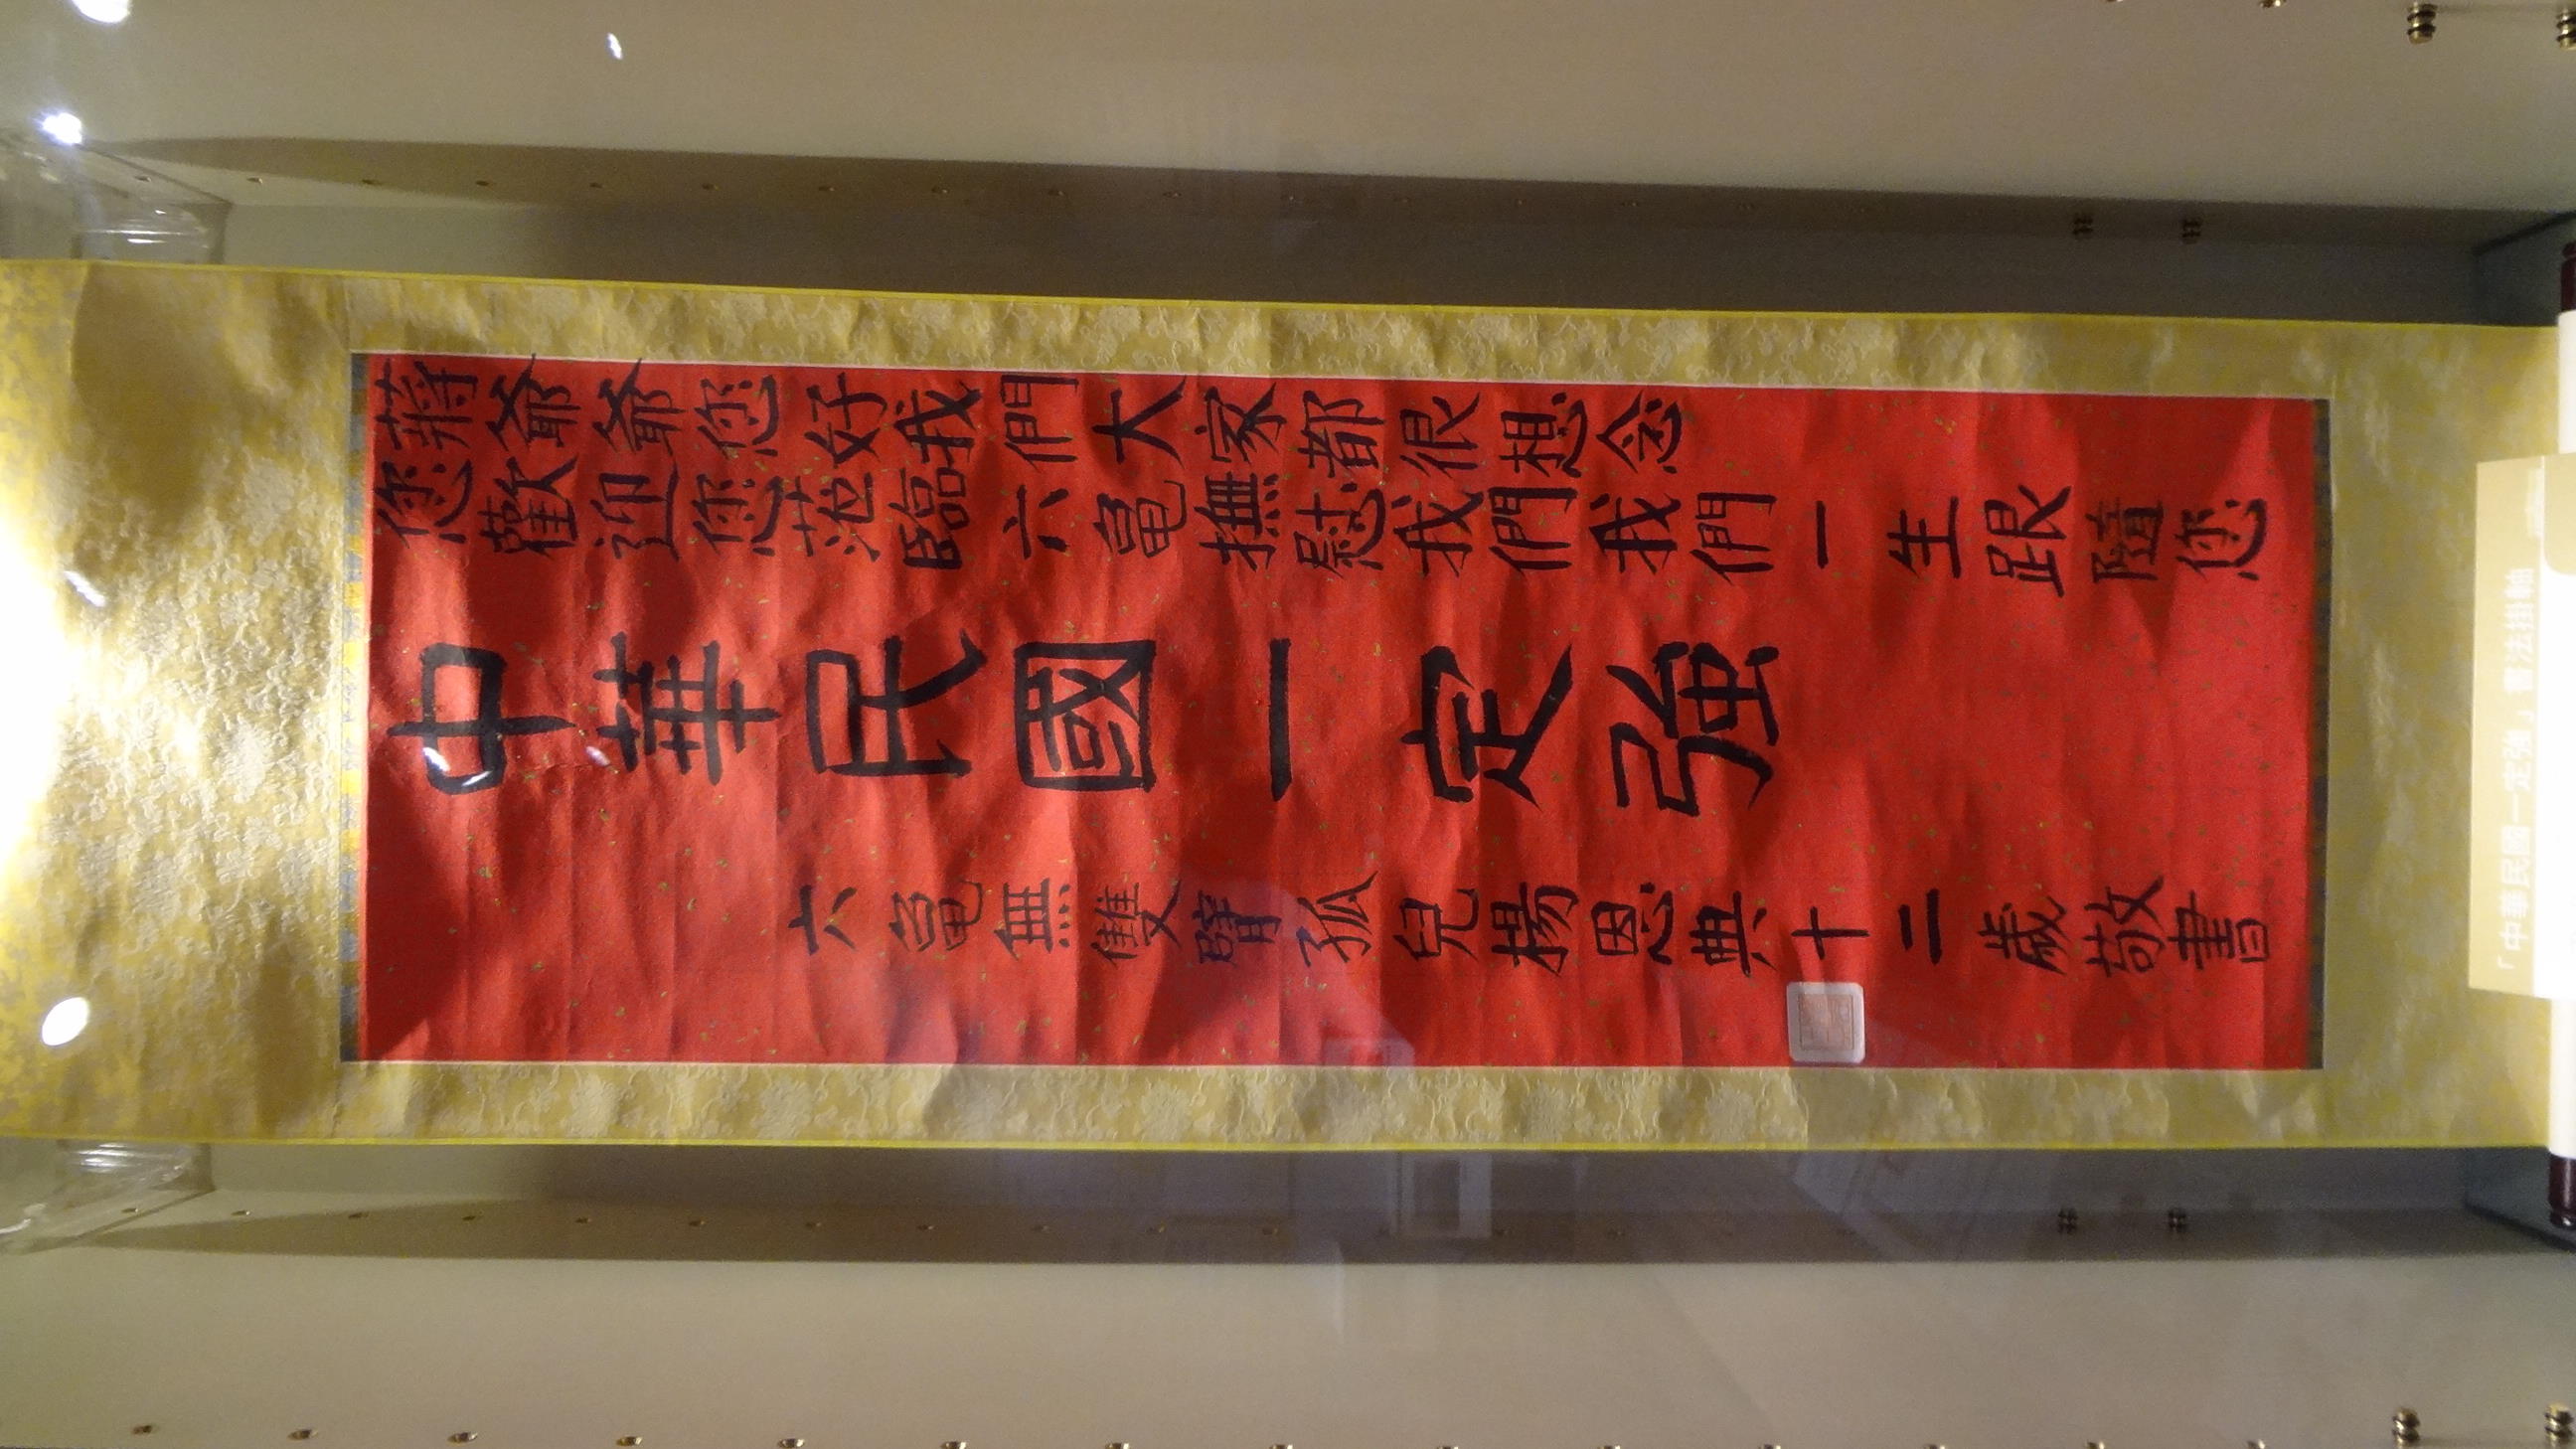 蔣爺爺您好我們大家都很想念
您歡迎您蒞臨六龜撫慰我們我們一生跟隨您
中華民國一定強
六龜無雙臂孤兒楊恩典十二歲敬書
「中華民國一定強」書法掛軸